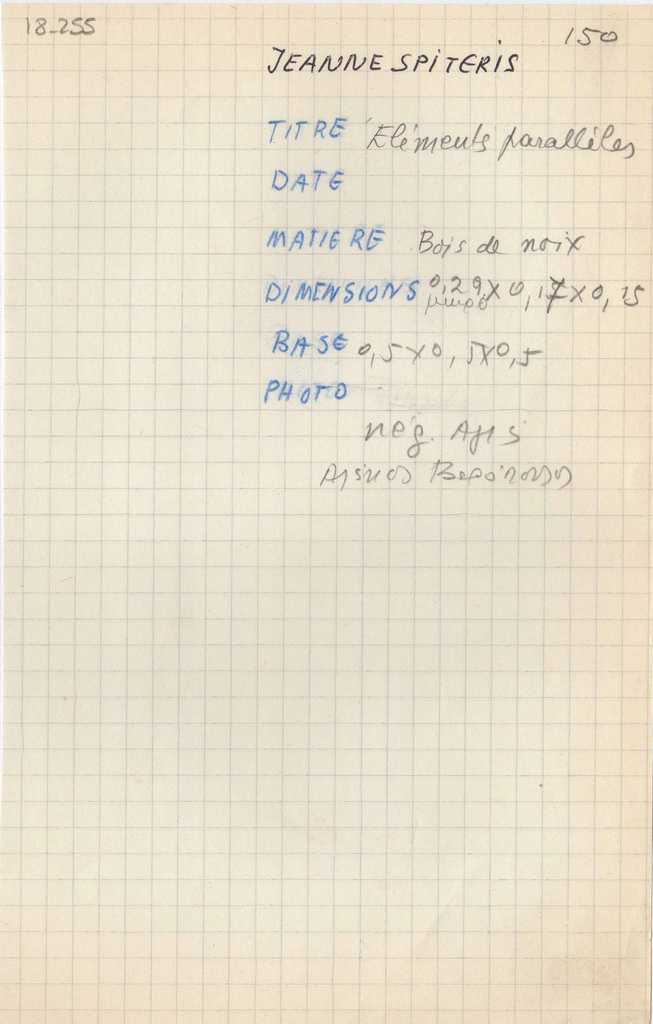 18-255
150
JEANNE SPITERIS
TITRE Eléments parallèles
DATE
MATIERE Bois de noix
DIMENSIONS 0,29 X 0,17 X 0,15
BASE 0,5 X 0,5 X 0,5
PHOTO
nég.